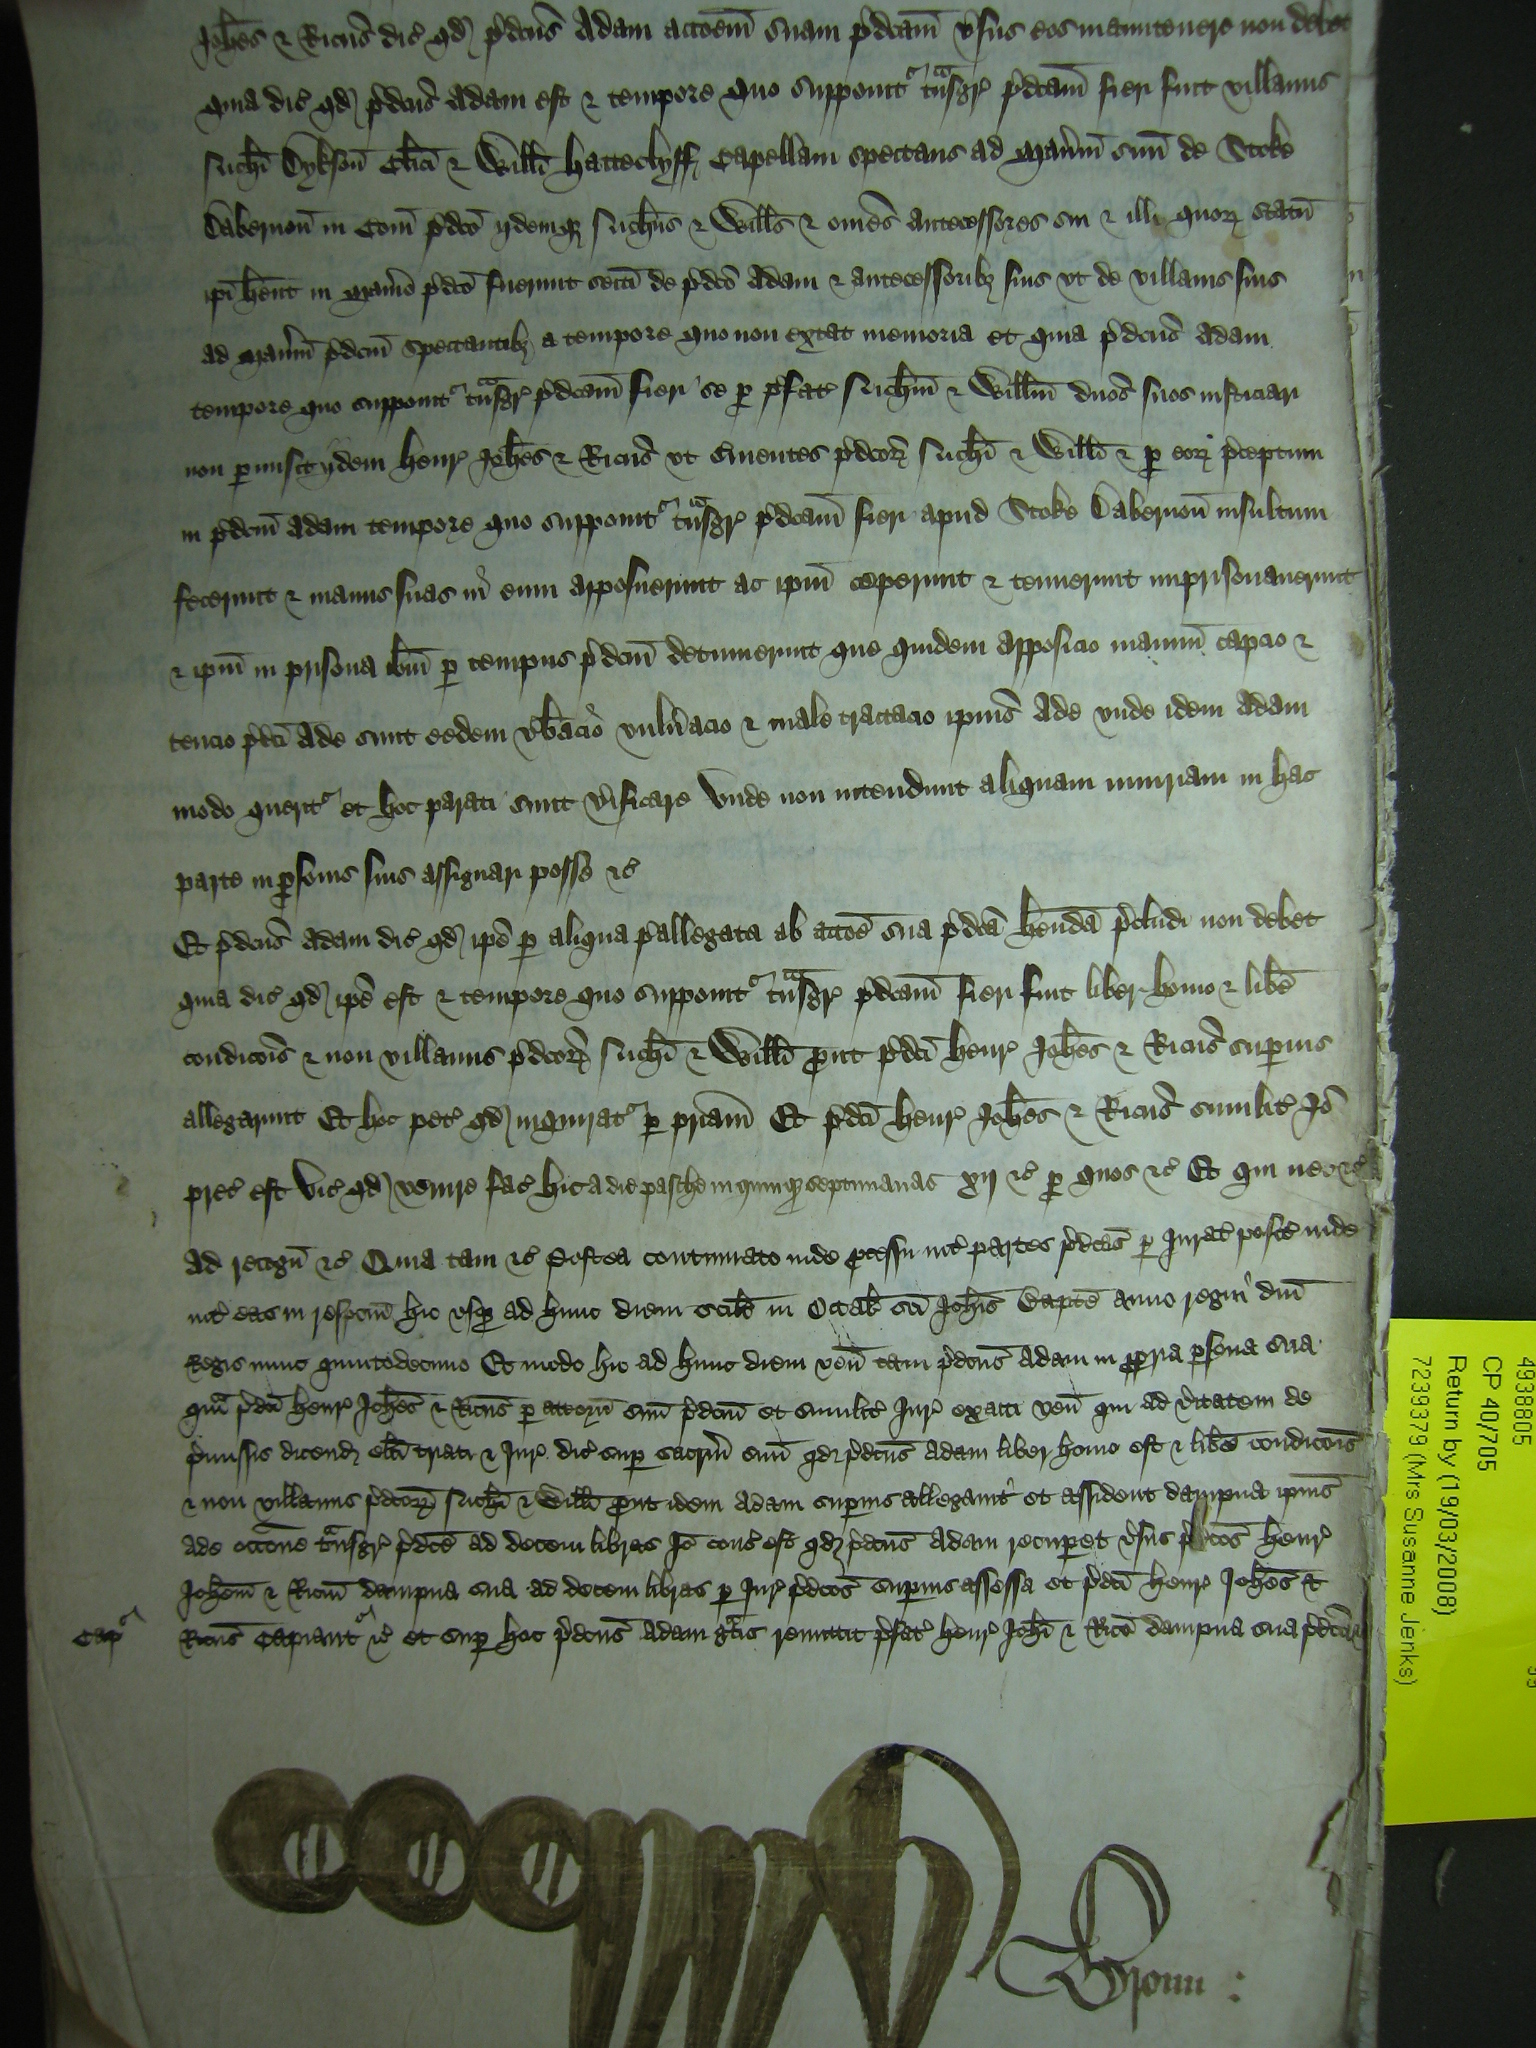 Joh̄es & Ricus dic̄ qd p̄dcus Adam acco͞em suam p̄dcam v̄sus eos manutenere non debet
quia dic̄ qd p̄dcus Adam est & tempore quo supponit᷑ tᵃnsgr̄ p̄dcam fieri fuit villanus
Nich̄i Dykson Cl̄ici & Will̄i Hatteclyff Capellani spectans ad Man̄iu suu de Stoke
Dabernon in Com̄ p̄dco ijdemqȝ Nich̄us & Will̄s & om̄es antecessores sui & illi quoꝝ statū
ip̄i h̄ent in Man̄io p̄dco fuerunt seiti de p̄dco Adam & antecessoribȝ suis vt de villanis suis
ad Man̄iu p̄dcm spectantibȝ a tempore quo non extat memoria et quia p̄dcus Adam
tempore quo supponit᷑ tᵃnsgr̄ p̄dcam fieri se p̱ p̄fat̄ Nich̄m & Will̄m dn̄os suos iusticiari
non p̱misit ijdem Henr̄ Joh̄es & Ricus vt s̄uientes p̄dcoꝝ Nich̄i & Will̄i & p̱ eoꝝ p̄ceptum
in p̄dcm Adam tempore quo supponit᷑ tᵃnsgr̄ p̄dcam fieri apud Stoke Dabernon insultum
fecerunt & manus suas in eum apposuerunt ac ip̄m ceperunt & tenuerunt imprisonauerunt
& ip̄m in prisona ib̄m p̱ tempus p̄dcm detinuerunt que quidem apposicio manuu capcio &
tencio p̄dci Ade sunt eedem v̄b̄acio vuln̄acio & male tractacio ipius Ade vnde idem Adam
modo querit᷑ et hoc parati sunt v̄ificare Vnde non intendunt aliquam iniuriam in hac
parte in p̱sonis suis assignari posse &c̄
Et p̄dcus Adam dic̄ qd ip̄e p̱ aliqua p̄allegata ab acc̄oe sua p̄dca h̄enda p̄cludi non debet
quia dic̄ qd ip̄e est & tempore quo supponit᷑ tᵃnsgr̄ p̄dcam fieri fuit liber homo & lib̄e
condicōis & non villanus p̄dcoꝝ Nich̄i & Will̄i p̱ut p̄dci Henr̄ Joh̄es & Ricus sup̱ius
allegarunt Et hoc pet̄ qd inquirat᷑ p̱ pr̄iam Et p̄dci Henr̄ Joh̄es & Ricus similit̄ Jō
prec̄ est vic̄ qd venire fac̄ hic a die pasche in quinqȝ septimanas xij &c̄ p̱ quos &c̄ Et qui nec &c̄
Ad recogn̄ &c̄ Quia tam &c̄ Postea continuato inde p̱cessu int̄ partes p̄dcas p̱ Jurat̄ posit̄ inde
int̄ eas in resp̄cm hic vsqȝ ad hunc diem scil̄t in Octab̄ sci Joh̄is Bapte anno regni dn̄i
Regis nunc quintodecimo Et modo hic ad hunc diem ven̄ tam p̄dcus Adam in p̱pria p̱sona sua
qm̄ p̄dci Henr̄ Joh̄es & Ricus p̱ attorn̄ suu p̄dcm et similit̄ Jur̄ exacti ven̄ qui ad v̄itatem de
p̄missis dicend̄ elc̄i triati & Jur̄ dic̄ sup̱ sacr̄m suu qd p̄dcus Adam liber homo est & lib̄e condicōis
& non villanus p̄dcoꝝ Nich̄i & Will̄i p̱ut idem Adam sup̱ius allegauit et assident dampna ipius
Ade occ̄one tᵃnsgr̄ p̄dce ad decem libras Jō cons̄ est qd p̄dcus Adam recup̱et v̄sus p̄dcos Henr̄
Joh̄em & Ricm dampna sua ad decem libras p̱ Jur̄ p̄dcos sup̱ius assessa et p̄dci Henr̄ Joh̄es &
Cap᷑ Ricus Capiant᷑ &c̄ et sup̱ hoc p̄dcus Adam gᵃtis remittit p̄fat̄ Henr̄ Joh̄i & Rico dampna sua p̄dca
4938805
CP 40/705
Return by (19/03/2008)
7239379 (Mrs Susanne Jenks)